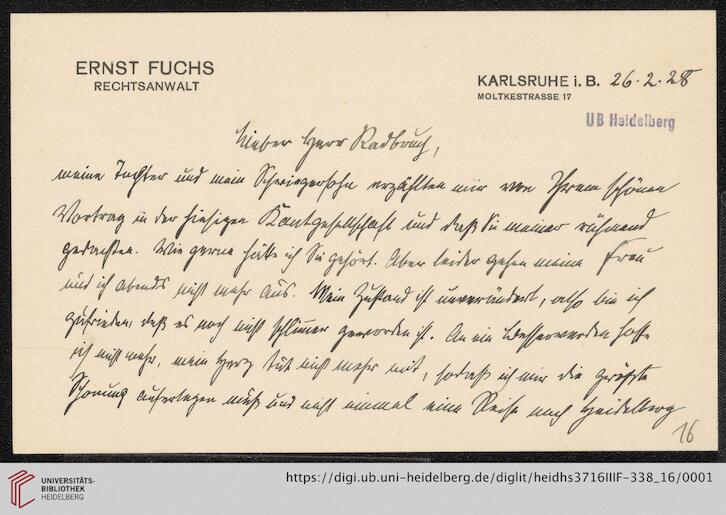 ERNST FUCHS
RECHTSANWALT
KARLSRUHE i. B. 26.2.28
MOLTKESTRASSE 17
UB Heidelberg
Lieber Herr Radbruch,
meine Tochter und mein Schwiegersohn erzählten mir von Ihrem schönen
Vortrag in der hiesigen Kantgesellschaft und daß Sie meiner rühmend
gedachten. Wie gerne hätte ich Sie gehört. Aber leider gehen meine Frau
und ich abends nicht mehr aus. Mein Zustand ist unverändert, also bin ich
zufrieden, daß es noch nicht schlimmer geworden ist. An ein Besserwerden hoffe
ich nicht mehr, mein Herz tut nicht mehr mit, sodaß ich mir die größte
Schonung auferlegen muß und nicht einmal eine Reise nach Heidelberg
16
UNIVERSITÄTS-
BIBLIOTHEK
HEIDELBERG
https://digi.ub.uni-heidelberg.de/diglit/heidhs3716IIIF-338_16/0001